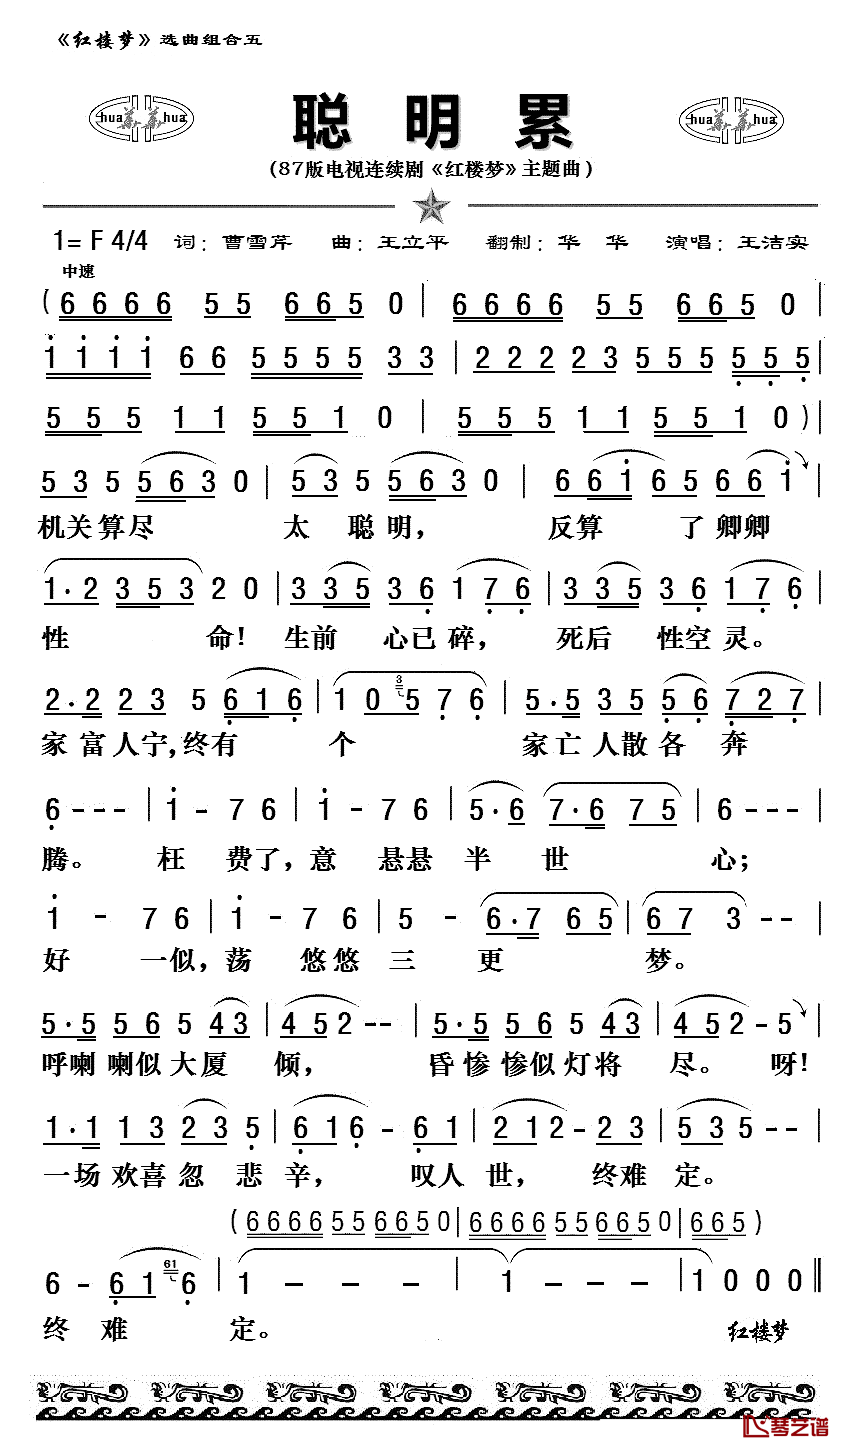 《红楼梦》选曲组合五
hua 华华 hua
聪明累
hua 华华 hua
(87版电视连续剧《红楼梦》主题曲)
1= F 4/4 词：曹雪芹 曲：王立平 翻制：华 华 演唱：王洁实
中速
(6 6 6 6 5 5 6 6 5 0 | 6 6 6 6 5 5 6 6 5 0 |
1 1 1 1 6 6 5 5 5 5 3 3 | 2 2 2 2 2 3 5 5 5 5 5 5 |
5 5 5 1 1 5 5 1 0 | 5 5 5 1 1 5 5 1 0 ) |
5 3 5 5 6 3 0 | 5 3 5 5 6 3 0 | 6 6 1 6 5 6 6 1 |
机关算尽 太聪明， 反算 了卿卿
1 · 2 3 5 3 2 0 | 3 3 5 3 6 1 7 6 | 3 3 5 3 6 1 7 6 |
性 命！ 生前 心已碎， 死后 性空灵。
2 · 2 2 3 5 6 1 6 | 1 0 3 5 7 6 | 5 · 5 3 5 5 6 7 2 7 |
家富人宁,终有 个 家亡人散各 奔
6 - - - | 1 - 7 6 | 1 - 7 6 | 5 · 6 7 · 6 7 5 | 6 - - - |
腾。 枉 费了，意 悬悬 半 世 心；
1 - 7 6 | 1 - 7 6 | 5 - 6 · 7 6 5 | 6 7 3 - - |
好 一似，荡 悠悠 三 更 梦。
5 · 5 5 6 5 4 3 | 4 5 2 - - | 5 · 5 5 6 5 4 3 | 4 5 2 - 5 |
呼喇 喇似大厦 倾， 昏惨惨似灯将 尽。 呀！
1 · 1 1 3 2 3 5 | 6 1 6 - 6 1 | 2 1 2 - 2 3 | 5 3 5 - - |
一场欢喜忽 悲辛， 叹人 世， 终难 定。
(6 6 6 6 5 5 6 6 5 0 | 6 6 6 6 5 5 6 6 5 0 | 6 6 5 )
6 - 6 1 61 6 | 1 - - - | 1 - - - | 1 0 0 0 ‖
终 难 定。 红楼梦
琴艺谱